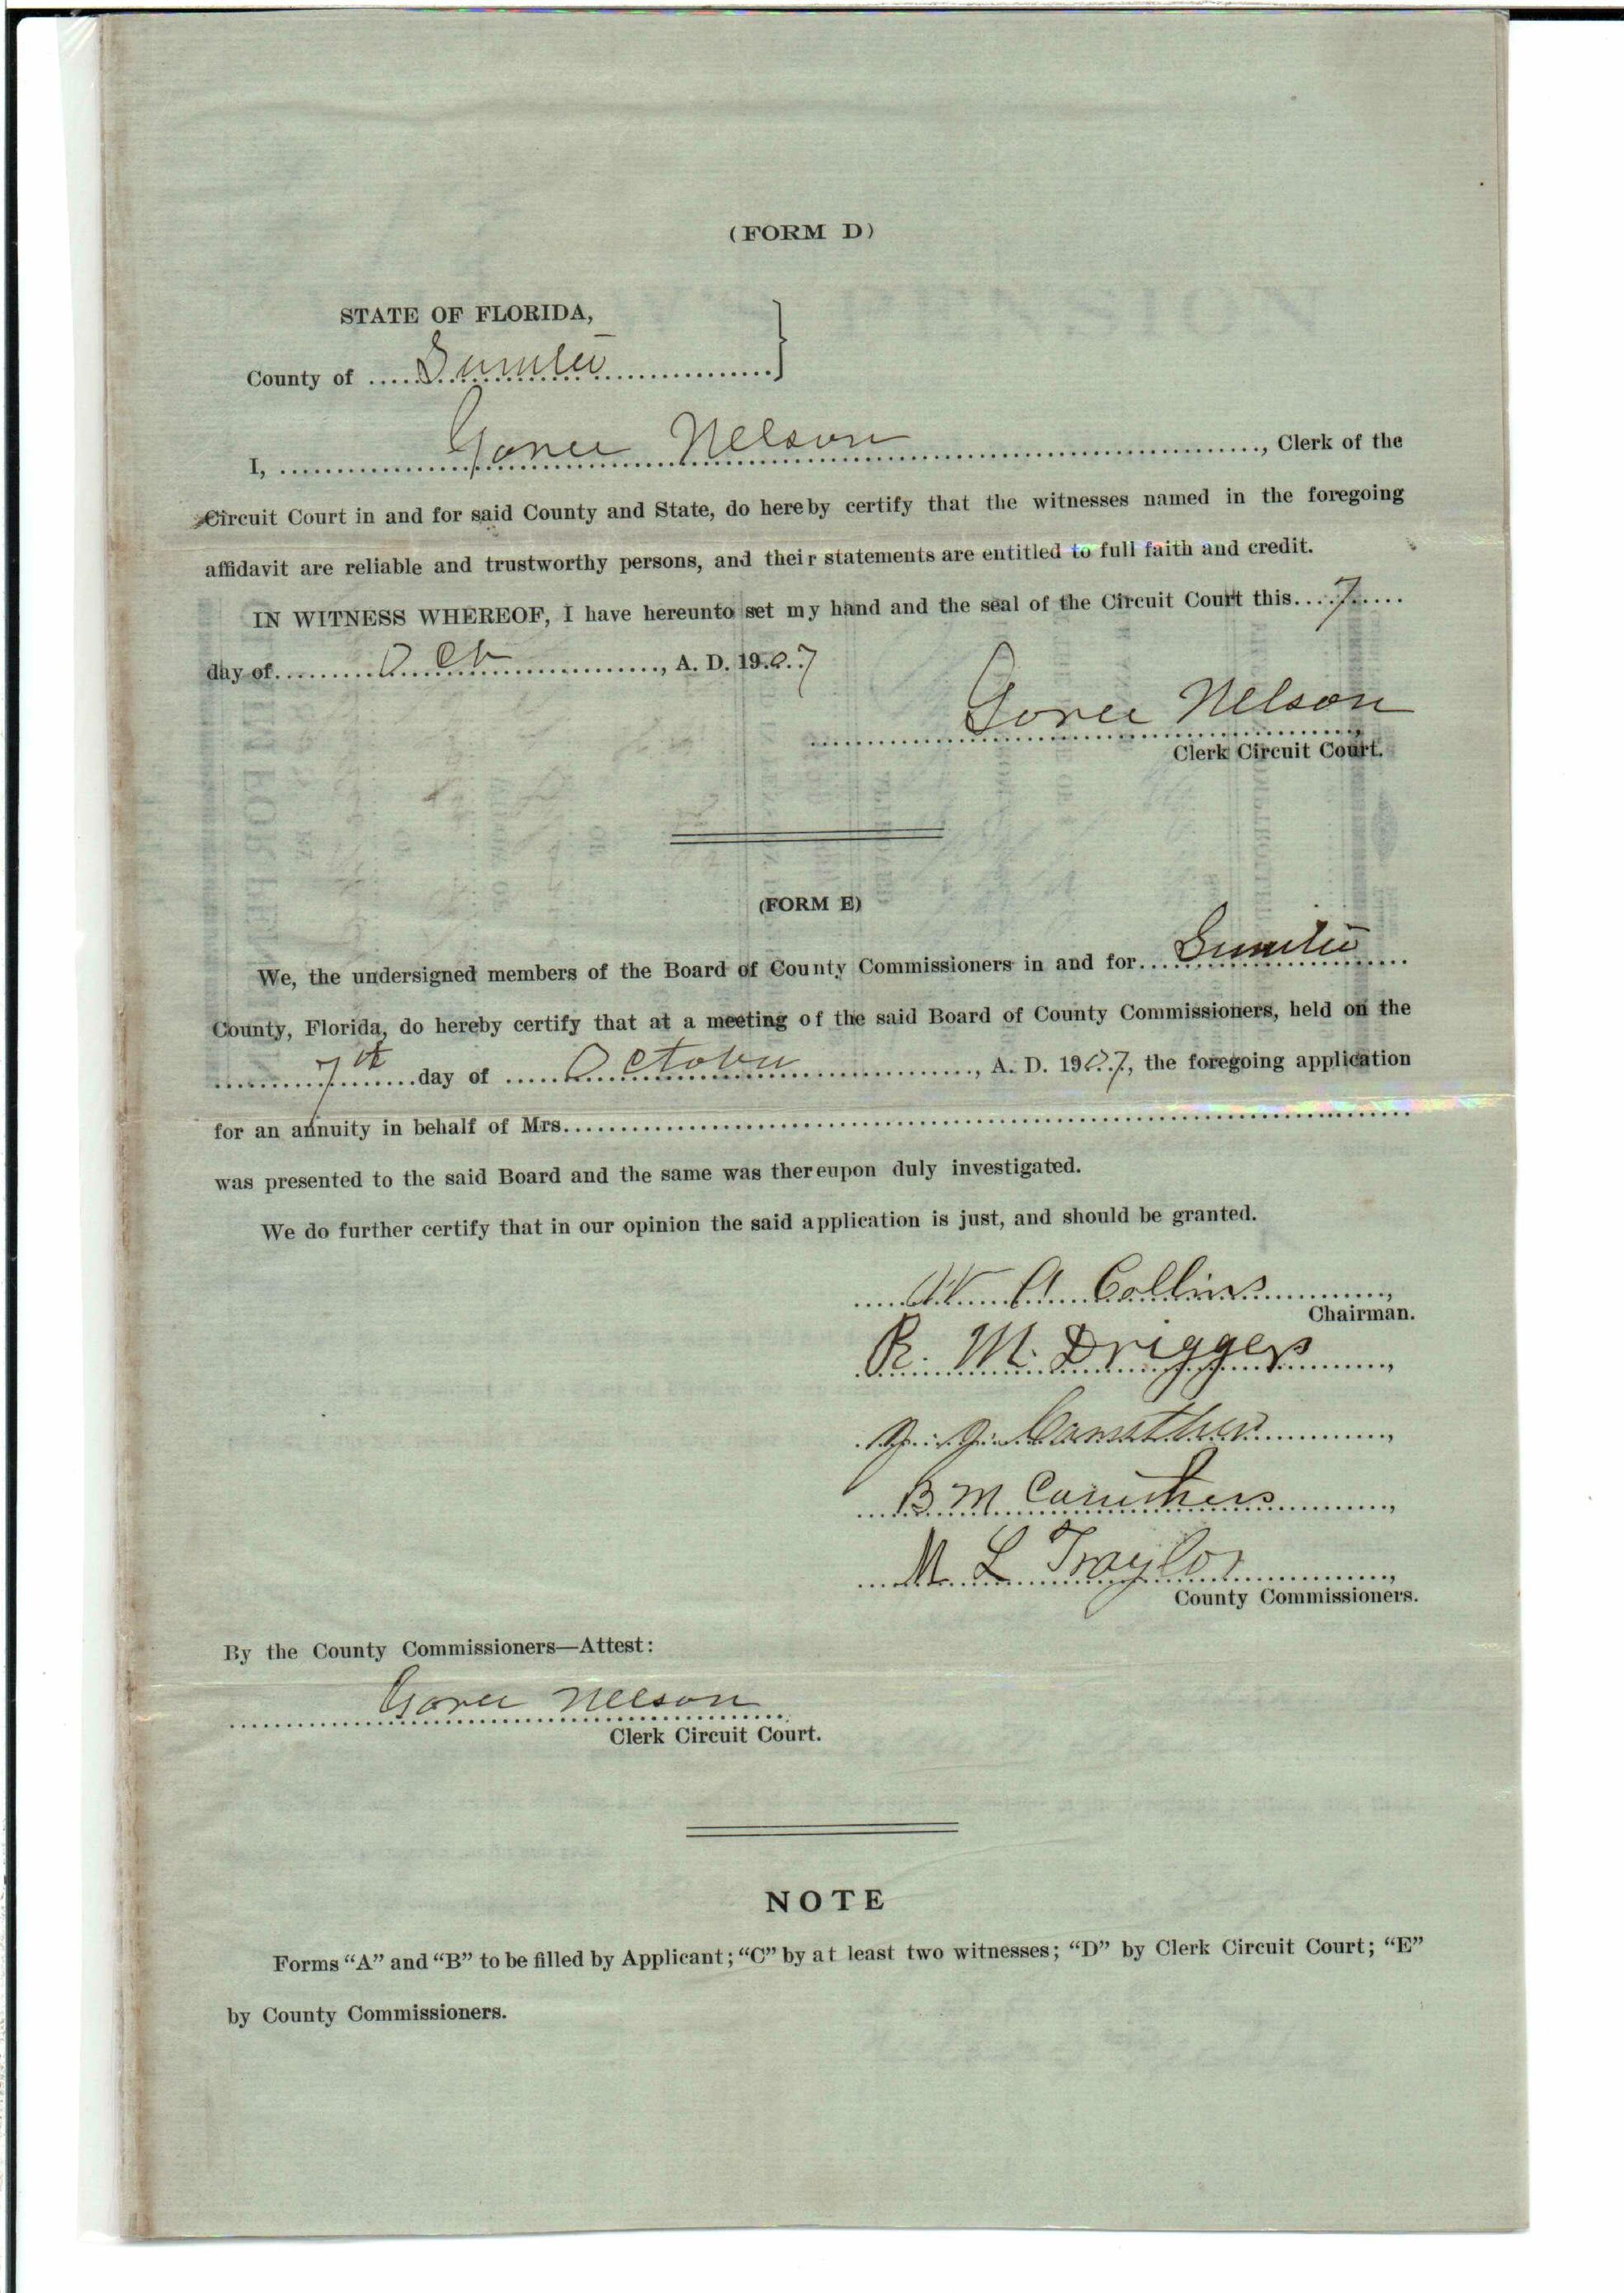 (FORM D)
STATE OF FLORIDA,
County of Sumter
I, Goree Nelson, Clerk of the
Circuit Court in and for said County and State, do hereby certify that the witnesses named in the foregoing
affidavit are reliable and trustworthy persons, and their statements are entitled to full faith and credit.
IN WITNESS WHEREOF, I have hereunto set my hand and the seal of the Circuit Court this 7
day of Oct, A. D. 1907
Goree Nelson
Clerk Circuit Court.
(FORM E)
We, the undersigned members of the Board of County Commissioners in and for Sumter
County, Florida, do hereby certify that at a meeting of the said Board of County Commissioners, held on the
7th day of October, A. D. 1907, the foregoing application
for an annuity in behalf of Mrs.
was presented to the said Board and the same was thereupon duly investigated.
We do further certify that in our opinion the said application is just, and should be granted.
W. A. Collins,
Chairman.
R. M. Driggers,
B M Caruthers,
M L Traylor,
County Commissioners.
By the County Commissioners—Attest:
Goree Nelson
Clerk Circuit Court.
NOTE
Forms “A” and “B” to be filled by Applicant; “C” by at least two witnesses; “D” by Clerk Circuit Court; “E”
by County Commissioners.